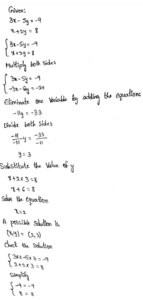 Given:
3x - 5y = -9
x + 2y = 8
{3x - 5y = -9
{x + 2y = 8
Multiply both sides
{3x - 5y = -9
{-3x - 6y = -24
Eliminate one variable by adding the equations
-11y = -33
Divide both sides
-11/-11 y = -33/-11
y = 3
Substitute the value of y
x + 2 × 3 = 8
x + 6 = 8
Solve the equation
x = 2
A possible solution is
(x,y) = (2,3)
Check the solution
{3×2 - 5×3 = -9
{2 + 2×3 = 8
Simplify
{-9 = -9
{8 = 8